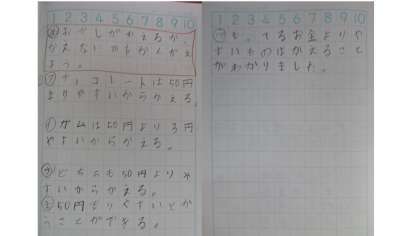 1 2 3 4 5 6 7 8 9 10
おかしがかえるか、
かえないかをかんがえ
よう。
チョコレートは50円
よりやすいからかえる。
ガムは50円より3円
やすいからかえる。
どちらも50円よりや
すいからかえる。
50円よりやすいとか
うことができる。
1 2 3 4 5 6 7 8 9 10
もってるお金よりや
すいものはかえること
がわかりました。